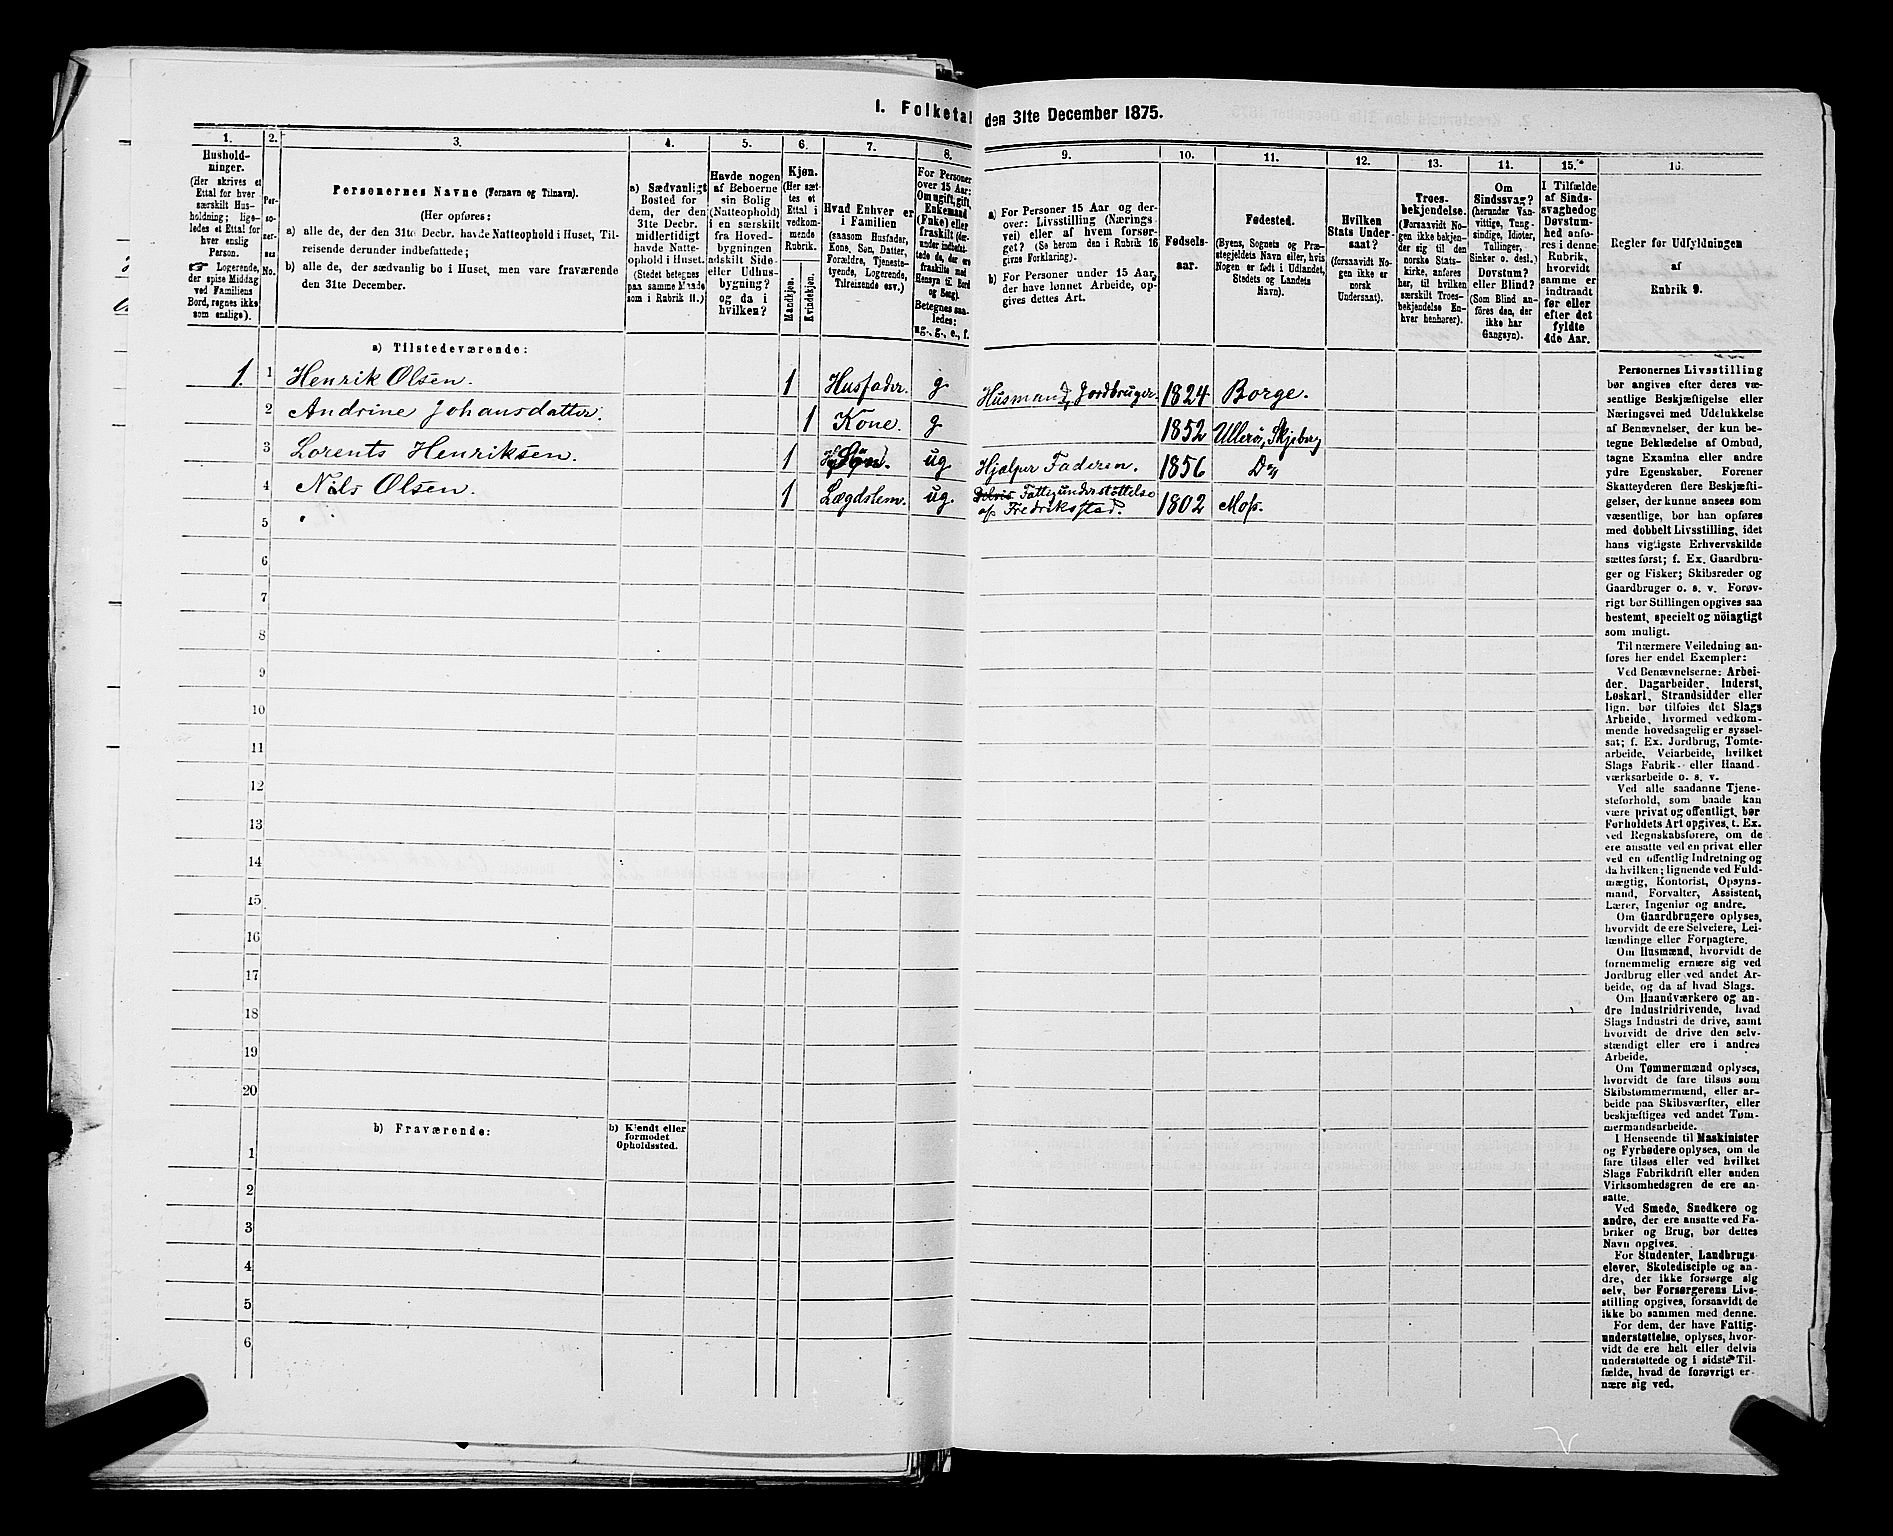 1. Folketal den 31te December 1875.
1.
Hushold-
ninger.
(Her skrives et
Ettal for hver
særskilt Hus-
holdning; lige-
ledes et Ettal for
hver enslig
Person.
☞ Logerende,
der spise Middag
ved Familiens
Bord, regnes ikke
som enslige).
2.
Per-
so-
ner-
nes
No.
3.
Personernes Navne (Fornavn og Tilnavn).
(Her opføres:
a) alle de, der den 31te Decbr. havde Natteophold i Huset, Til-
reisende derunder indbefattede;
b) alle de, der sædvanlig bo i Huset, men vare fraværende
den 31te December.
4.
a) Sædvanligt
Bosted for
dem, der den
31te Decbr.
midlertidigt
havde Natte-
ophold i Huset.
(Stedet betegnes
paa samme Maade
som i Rubrik II.)
5.
Havde nogen
af Beboerne
sin Bolig
(Natteophold)
i en særskilt
fra Hoved-
bygningen
adskilt Side-
eller Udhus-
bygning?
og da i
hvilken?
6.
Kjøn.
(Her sæt-
tes et
Ettal i
vedkom-
mende
Rubrik.
Mandkjøn.
Kvindekjøn.
7.
Hvad Enhver er
i Familien
(saasom Husfader,
Kone, Søn, Datter,
Forældre, Tjeneste-
tyende, Logerende,
Tilreisende osv.)
8.
For Personer
over 15 Aar:
Om ugift, gift,
Enkemand
(Enke) eller
fraskilt (der-
under indbefat-
tede de, der ere
fraskilte med
Hensyn til Bord
og Seng).
Betegnes saa-
ledes:
ug., g., e., f.
9.
a) For Personer 15 Aar og der-
over: Livsstilling (Nærings-
vei) eller af hvem forsør-
get? (Se herom den i Rubrik 16
givne Forklaring).
b) For Personer under 15 Aar,
der have lønnet Arbeide, op-
gives dettes Art.
10.
Fødsels-
aar.
11.
Fødested.
(Byens, Sognets og Præ-
stegjeldets Navn eller, hvis
Nogen er født i Udlandet,
Stedets og Landets
Navn).
12.
Hvilken
Stats Under-
saat?
(forsaavidt No-
gen ikke er
norsk
Undersaat).
13.
Troes-
bekjendelse.
(Forsaavidt No-
gen ikke bekjen-
der sig til den
norske Stats-
kirke, anføres
her, til hvilken
særskilt Troes-
bekjendelse En-
hver henhører).
14.
Om
Sindssvag?
(herunder Van-
vittige, Tung-
sindige, Idioter,
Tullinger,
Sinker o. desl.)
Døvstum?
eller Blind?
(Som Blind an-
føres den, der
ikke har
Gangsyn).
15.*
I Tilfælde
af Sinds-
svaghed og
Døvstum-
hed anfø-
res i denne
Rubrik,
hvorvidt
samme er
indtraadt
før eller
efter det
fyldte
4de Aar.
16.
Regler før Udfyldningen
af
Rubrik 9.
a) Tilstedeværende:
1. 1 Henrik Olsen. 1 Husfader. g Husmand, Jordbruger. 1824 Borge.
2 Andrine Johansdatter. 1 Kone. g 1852 Ullerø, Skjeberg
3 Lorents Henriksen. 1 Søn. ug Hjælper Faderen. 1856 Do
4 Nils Olsen. 1 Lægdslem. ug. Delvis Fattigunderstøttelse
af Fredriksstad. 1802 Moss.
5
6
7
8
9
10
11
12
13
14
15
16
17
18
19
20
b) Fraværende:
b) Kjendt eller
formodet
Opholdssted.
1
2
3
4
5
6
Personernes Livsstilling
bør angives efter deres væ-
sentlige Beskjæftigelse eller
Næringsvei med Udelukkelse
af Benævnelser, der kun be-
tegne Beklædelse af Ombud,
tagne Examina eller andre
ydre Egenskaber. Forener
Skatteyderen flere Beskjæfti-
gelser, der kunne ansees som
væsentlige, bør han opføres
med dobbelt Livsstilling, idet
hans vigtigste Erhvervskilde
sættes først; f. Ex. Gaardbru-
ger og Fisker; Skibsreder og
Gaardbruger o. s. v. Forøv-
rigt bør Stillingen opgives saa
bestemt, specielt og nöiagtigt
som muligt.
Til nærmere Veiledning an-
føres her endel Exempler:
Ved Benævnelserne: Arbei-
der, Dagarbeider, Inderst,
Løskarl, Strandsidder eller
lign. bør tilføies det Slags
Arbeide, hvormed vedkom-
mende hovedsagelig er syssel-
sat; f. Ex. Jordbrug, Tomte-
arbeide, Veiarbeide, hvilket
Slags Fabrik- eller Haand-
værksarbeide o. s. v.
Ved alle saadanne Tjene-
steforhold, som baade kan
være privat og offentligt, bør
Forholdets Art opgives, t. Ex.
ved Regnskabsførere, om de
ere ansatte ved en privat eller
ved en offentlig Indretning og
da hvilken; lignende ved Fuld-
mægtig, Kontorist, Opsyns-
mand, Forvalter, Assistent,
Lærer, Ingeniør og andre.
Om Gaardbrugere oplyses,
hvorvidt de ere Selveiere, Lei-
lændinge eller Forpagtere.
Om Husmænd, hvorvidt de
fornemmelig ernære sig ved
Jordbrug eller ved andet Ar-
beide, og da af hvad Slags.
Om Haandværkere og an-
dre Industridrivende, hvad
Slags Industri de drive, samt
hvorvidt de drive den selv-
stændigt eller ere i andres
Arbeide.
Om Tømmermænd oplyses,
hvorvidt de fare tilsøs som
Skibstømmermænd, eller ar-
beide paa Skibsværfter, eller
beskjæftiges ved andet Tøm-
mermandsarbeide.
I Henseende til Maskinister
og Fyrbødere oplyses, om de
fare tilsøs eller ved hvilket
Slags Fabrikdrift eller anden
Virksomhedsgren de ere an-
satte.
Ved Smede, Snedkere og
andre, der ere ansatte ved Fa-
briker og Brug, bør dettes
Navn opgives.
For Studenter, Landbrugs-
elever, Skoledisciple og an-
dre, der ikke forsørge sig
selv, bør Forsørgerens Livs-
stilling opgives, forsaavidt de
ikke bo sammen med denne.
For dem, der have Fattig-
understøttelse, oplyses, hvor-
vidt de ere helt eller delvis
understøttede og i sidste Til-
fælde, hvad de forøvrigt er-
nære sig ved.